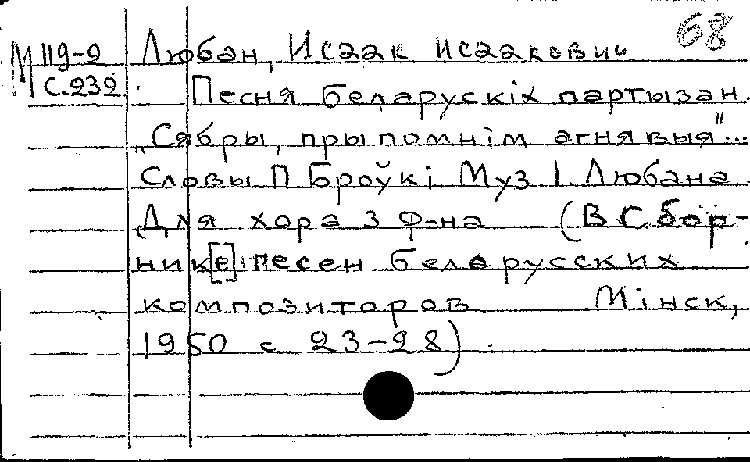 68
М 119-2 Любан, Исаак Исаакович
С.232. Песня беларускіх партызан
„Сябры, прыпомнім агнявыя"...
Словы П Броўкі Муз І Любана
Для хора з ф-на (В Сбор-
ник[е] песен белорусских
композиторов Мінск,
1950 с 23-28)